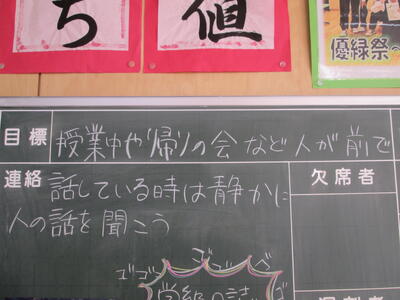 ち
値
優緑祭へ
目標 授業中や帰りの会など人が前で
連絡 話している時は静かに
人の話を聞こう
欠席者
ゴゴゴ